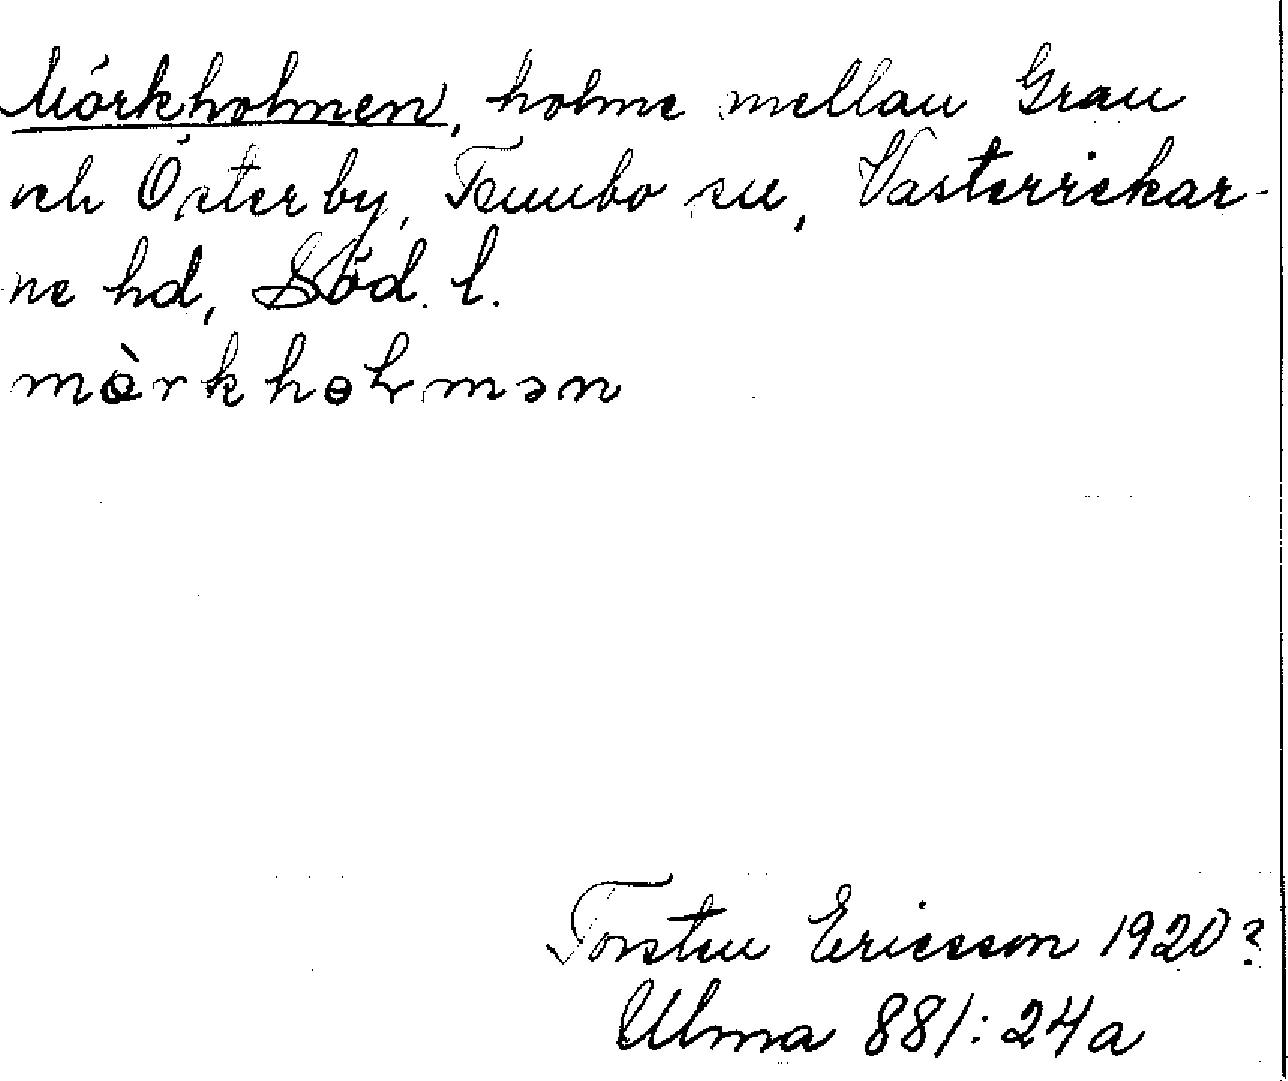 Mörkholmen, holme mellan Gran
och Österby, Tumbo sn, Västerrekar-
ne hd, Söd. l.
mɵ̀rkhɵlmən
Torsten Ericsson 1920?
Ulma 881:24a